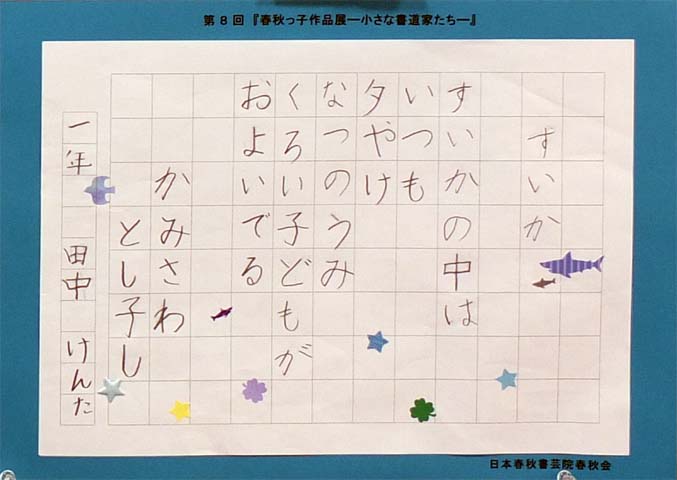 第8回『春秋っ子作品展―小さな書道家たち―』
すいか
すいかの中は
いつも
夕やけ
なつのうみ
くろい子どもが
およいでる
かみさわ
とし子し
一年 田中 けんた
日本春秋書芸院春秋会